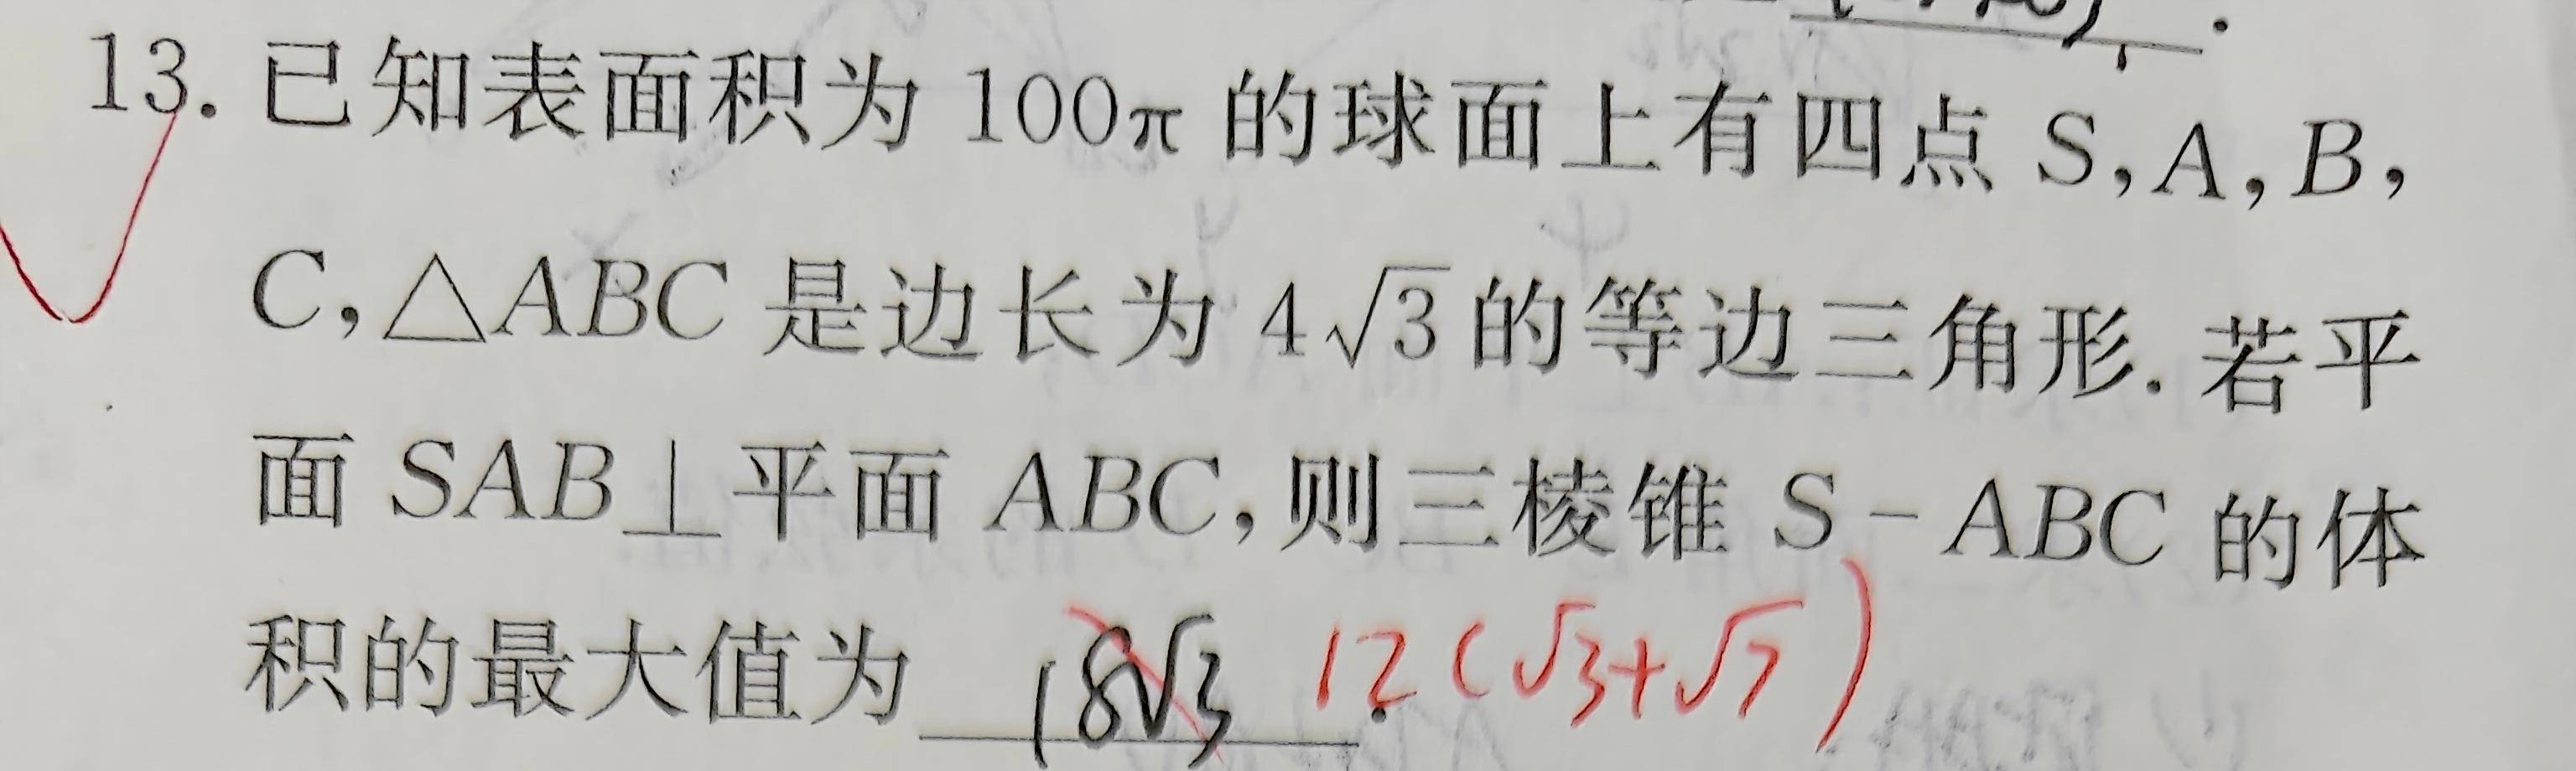 13. 已知表面积为 100π 的球面上有四点 S, A, B,
C, △ABC 是边长为 4√3 的等边三角形. 若平
面 SAB⊥平面 ABC, 则三棱锥 S-ABC 的体
积的最大值为 18√3 . 12(√3+√7)